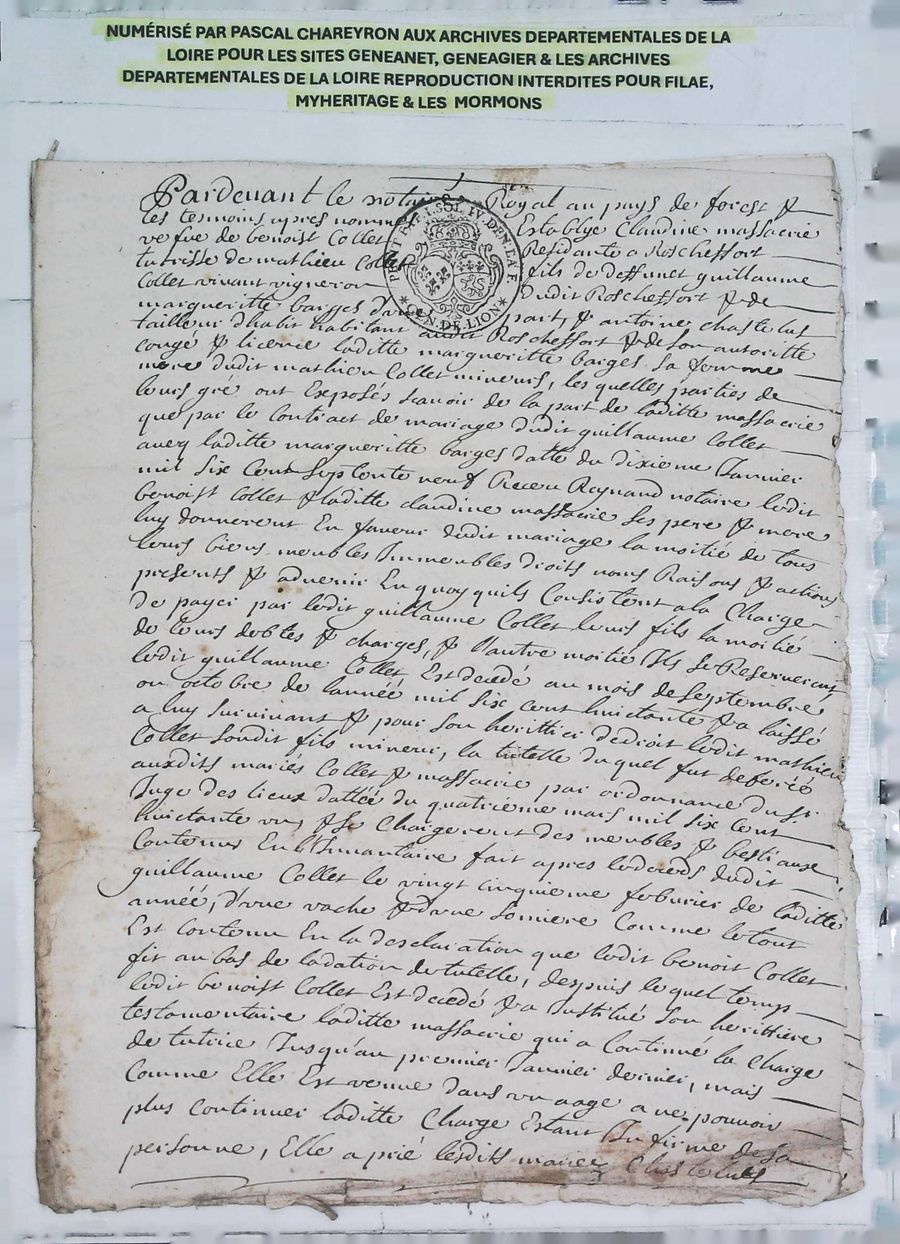 NUMÉRISÉ PAR PASCAL CHAREYRON AUX ARCHIVES DEPARTEMENTALES DE LA
LOIRE POUR LES SITES GENEANET, GENEAGIER & LES ARCHIVES
DEPARTEMENTALES DE LA LOIRE REPRODUCTION INTERDITES POUR FILAE,
MYHERITAGE & LES MORMONS
Pardevant le notaire Royal au pays de forest &
les tesmoins apres nomm Establye Claudine massacrie
vefue de benoist Collet Residante a Rocheffort
tutrisse de mathieu Collet fils de deffunct guillaume
Collet vivant vigneron dudit Rocheffort & de
margueritte barges d'une part, & antoine chastelus
tailleur d'habit habitant audit Rocheffort & de son autoritte
conge & licence laditte margueritte barges sa femme
mere dudit mathieu Collet mineurs, les quelles parties de
leurs gré ont Exposés scavoir de la part de laditte massacrie
que par le Contract de mariage dudit guillaume Collet
avecq laditte margueritte barges datté du dixieme Janvier
mil six Cent septente neuf Receu Raynaud notaire ledit
benoist Collet & laditte claudine massacrie ses pere & mere
luy donnerent En faveur dudit mariage la moitié de tous
leurs biens meubles Immeubles droits noms Raisons & actions
presents & advenir En quoy quils Consistent a la Charge
de payer par ledit guillaume Collet leurs fils la moitié
de leurs debtes & charges, & l'autre moitié Ils se Reserverent
ledit guillaume Collet Est decede au mois de septembre
ou octobre de lannée mil six cent huictante & a laissé
a luy survivant & pour son herittier dedroit ledit mathieu
Collet sondit fils mineur, la tutelle duquel fut deferée
auxdits mariés Collet & massacrie par ordonnance du sr
Juge des lieux dattée du quatrieme mars mil six cent
huictante un, & se Chargerent des meubles & bestiaux
Contenus En l'Inventaire fait apres ledeceds dudit
guillaume Collet le vingt cinquieme feburier de laditte
année, d'une vache & d'une somiere Comme le tout
Est contenu En la desclaration que ledit benoit Collet
fit au bas de ladation de tutelle, despuis lequel temp
ledit benoist Collet Est decedé & a Institué son herittiere
testamentaire laditte massacrie qui a Continué la charge
de tutrice Jusqu'au premier Janvier dernier, mais
Comme Elle Est venue dans un aage a ne pouvoir
plus continuer laditte Charge Estant Infirme de sa
personne, Elle a prié lesdits mariez Chastelus